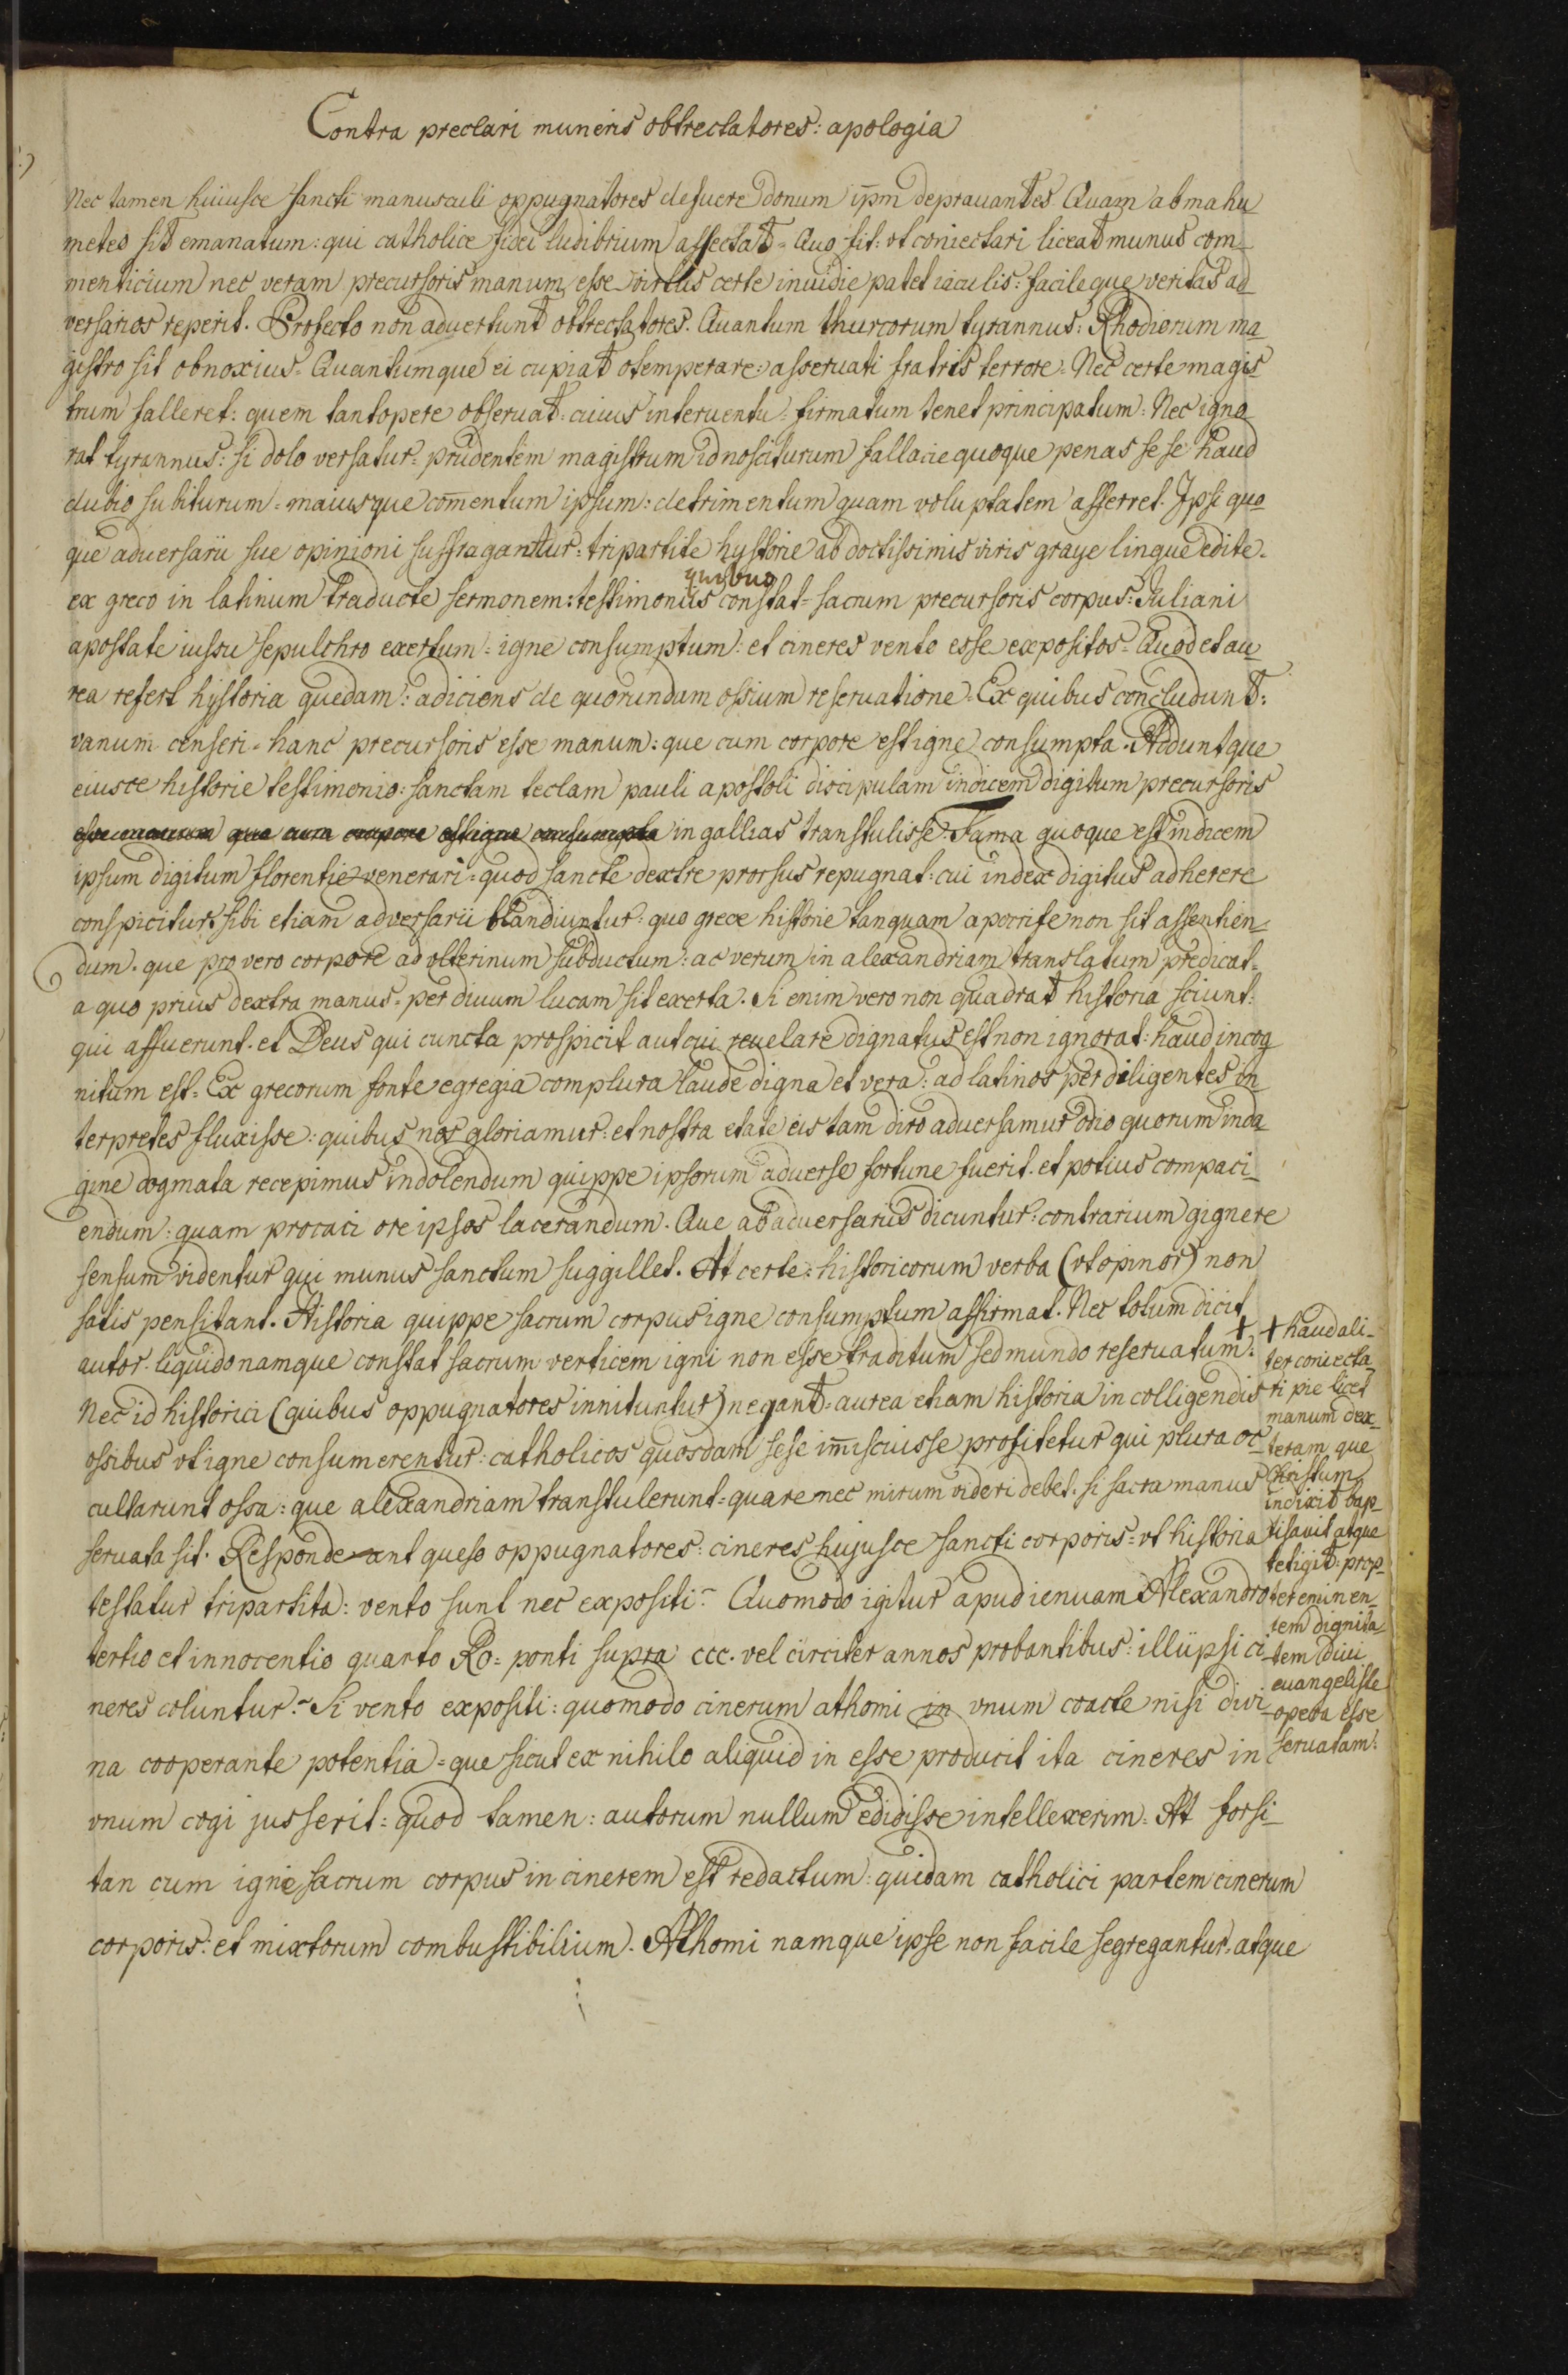 Contra preclari muneris obtrectatores: apologia
Nec tamen huiusce sancti manusculi oppugnatores defuere donum ipm deprauantes Quam ab mahu_
metes sit emanatum: qui catholice fidei ludibrium affectat= Quo fit: vt coniectari liceat munus com_
menticium nec veram precursoris manum esse virtus certe inuidie patet iaculis: facileque veritas ad_
versarios reperit. Profecto non aduertunt obtrectatores. Quantum thurcorum tyrannus: Rhodiorum ma_
gistro sit obnoxius= Quantumque ei cupiat otemperare: asseruati fratris terrore: Nec certe magis_
trum falleret: quem tantopere obseruat: cuius interuentu: firmatum tenet principatum: Nec igno_
rat tyrannus: si dolo versatur= prudentem magistrum id nosciturum fallacie quoque penas se se haud
dubio subiturum= maiusque comentum ipsum: detrimentum quam voluptatem afferret. Ipsi quo_
que aduersarii sue opinioni suffragantur= tripartite hystorie ab doctissimis viris graye lingue edite.
quibus
ex greco in latinum traducte sermonem: testimoniis constat= sacrum precursoris corpus: Juliani
apostate iussu sepulchro exertum= igne consumptum: et cineres vento esse expositos= Quod et au_
rea refert hystoria quedam: adiciens de quorundam ossium reseruatione= Ex quibus concludunt:
vanum censeri= hanc precursoris esse manum: que cum corpore est igne consumpta. Adduntque
eiusce historie testimonio: sanctam teclam pauli apostoli discipulam indicem digitum precursoris
esse manum que cum corpore est igne consumpta in gallias transtulisse. Fama quoque est indicem
ipsum digitum florentie venerari= quod sancte dextre prorsus repugnat: cui index digitus adherere
conspicitur: sibi etiam adversarii blandiuntur: quo grece historie tanquam apocrife non sit assentien_
dum. que pro vero corpore adolterinum subductum: ac verum in alexandriam translatum predicat=
a quo prius dextra manus= per diuum lucam sit exerta. Si enim vero non quadrat historia sciunt:
qui affuerunt. et Deus qui cuncta prospicit aut cui reuelare dignatus est non ignorat: haud incog_
nitum est= Ex grecorum fonte egregia complura laude digna et vera: ad latinos per diligentes in_
terpretes fluxisse: quibus nos gloriamur: et nostra etate eis tam diro aduersamur odio quorum inda_
gine dogmata recepimus indolendum quippe ipsorum aduerse fortune fuerit. et potius compaci_
endum: quam procaci ore ipsos lacerandum. Que ab aduersariis dicuntur: contrarium gignere
sensum videntur qui munus sanctum suggillet. At certe: historicorum verba (vt opinor) non
satis pensitant. Historia quippe sacrum corpus igne consumptum affirmat. Nec totum dicit
autor. liquido namque constat sacrum verticem igni non esse traditum sed mundo reseruatum: +
Nec id historici (quibus oppugnatores innituntur) negant= aurea etiam historia in colligendis
ossibus vt igne consumerentur: catholicos quosdam sese imiscuisse profitetur qui plura oc_
cultarunt ossa: que alexandriam transtulerunt= quare nec mirum videri debet. si sacra manus
seruata sit. Responde ant queso oppugnatores: cineres hujusce sancti corporis= vt historia
testatur tripartita: vento sunt nec expositi? Quomodo igitur apud ienuam Alexandro
tertio et innocentio quarto Ro= ponti supra ccc. vel circiter annos probantibus: illi ipsi ci_
neres coluntur? Si vento expositi: quomodo cinerum athomi in vnum coacte nisi divi_
na cooperante potentia= que sicut ex nihilo aliquid in esse producit ita cineres in
vnum cogi jusserit= quod tamen: autorum nullum edidisse intellexerim: At forsi_
tan cum igne sacrum corpus in cinerem est redactum: quidam catholici partem cinerum
corporis: et mixtorum combustibilium. Athomi namque ipse non facile segregantur. atque
+ haud ali_
ter coniecta_
ri pie licet
manum dex_
teram que
Christum
indixit bap_
tisauit atque
tetigit: prop_
ter eminen_
tem dignita_
tem diui
euangeliste
opera esse
seruatam: